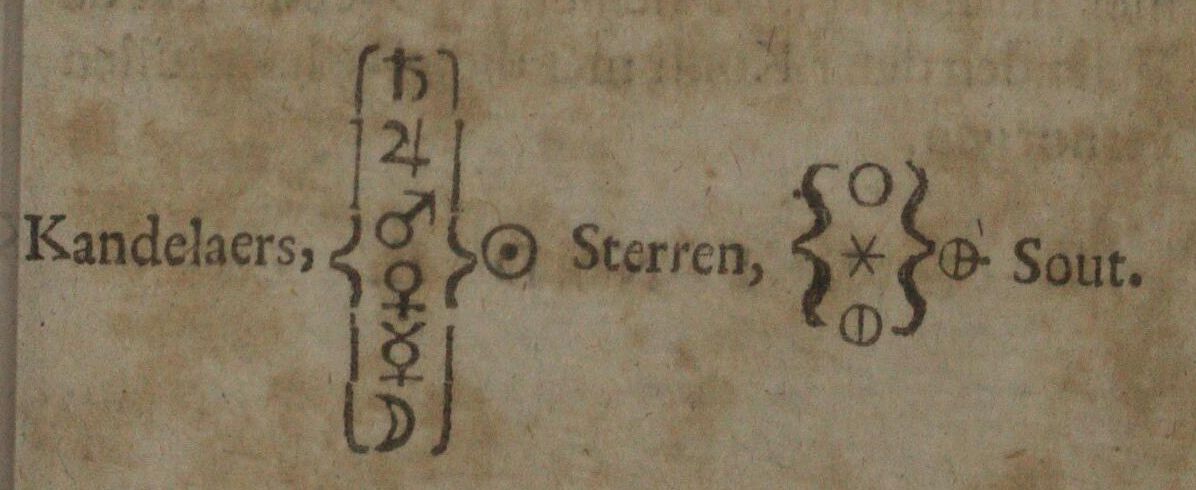 Kandelaers, { ♄ ♃ ♂ ♀ ☿ ☽ } ☉ Sterren, { ○ * ⦶ } 🜨 Sout.